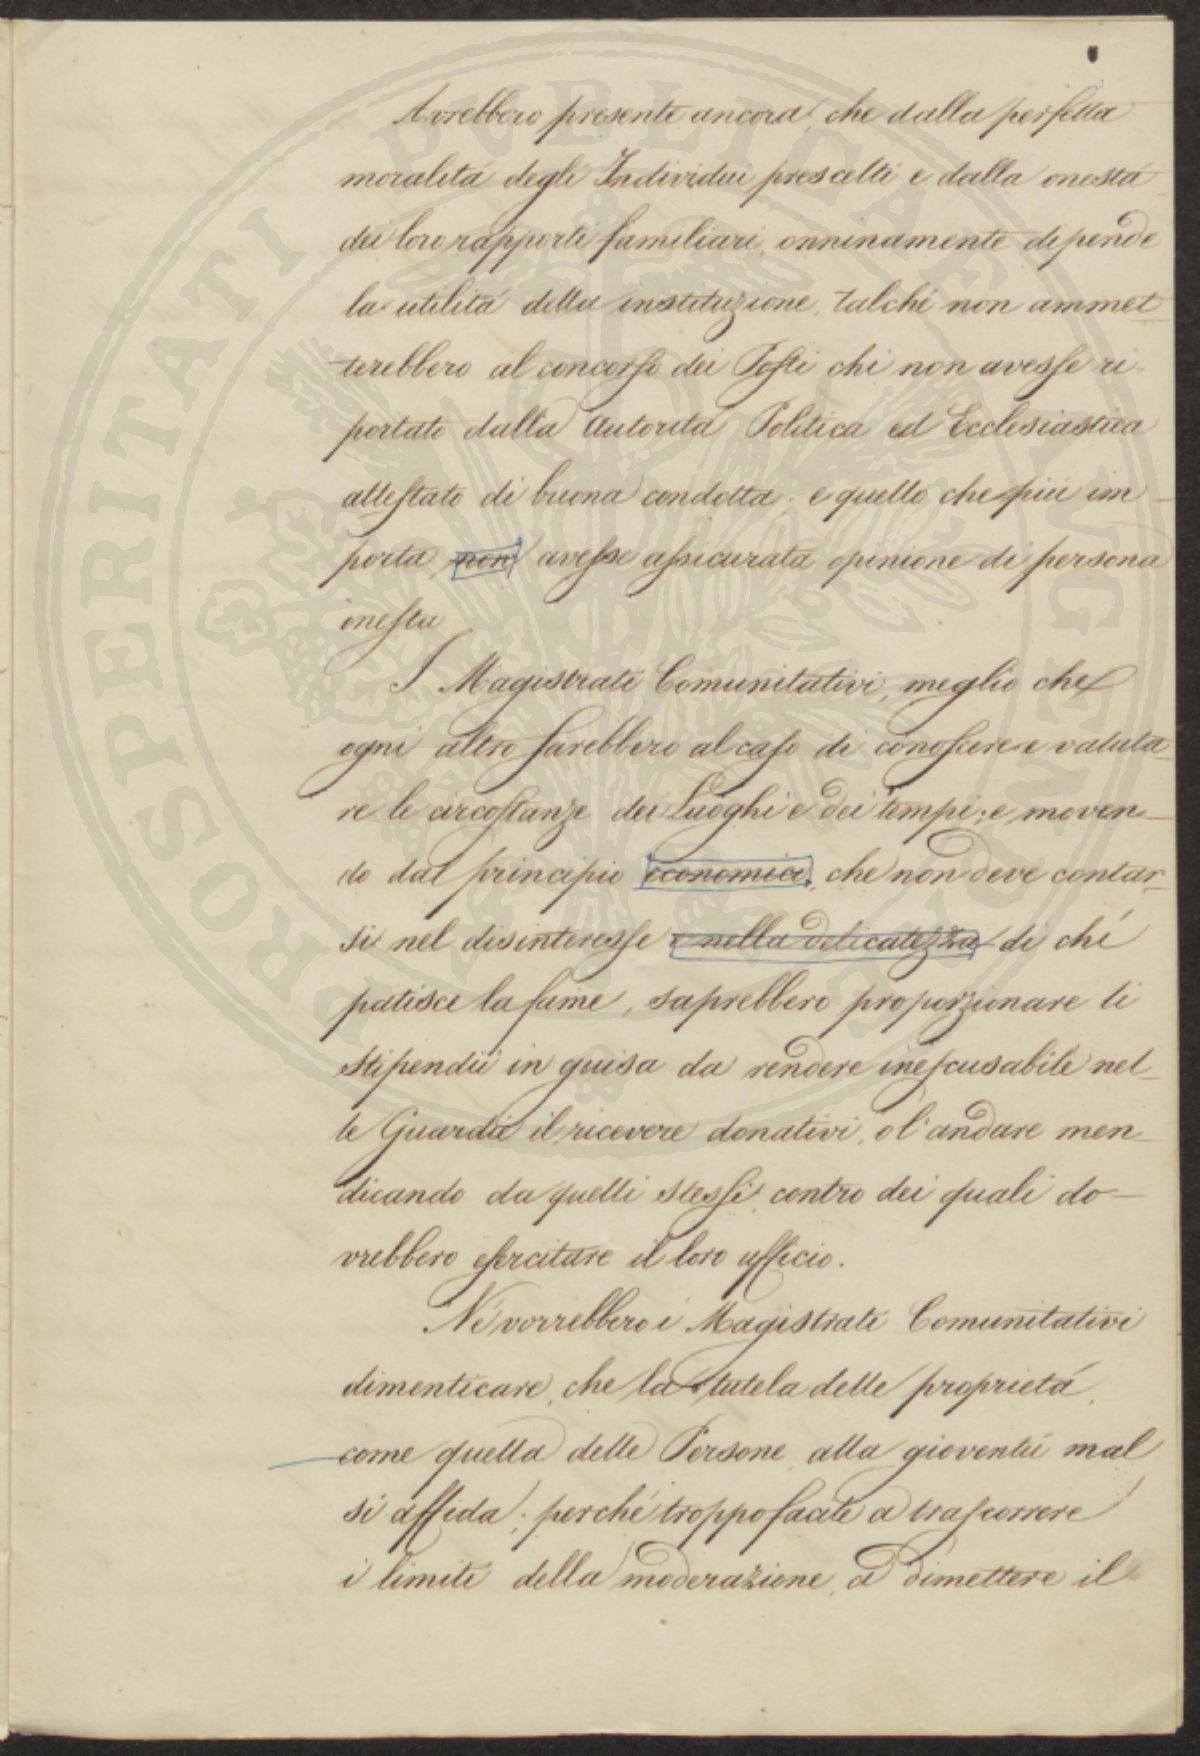 Avrebbero presente ancora, che dalla perfetta
moralitá degli Individui prescelti e dalla onestá
dei loro rapporti familiari, onninamente dipende
la utilitá della instituzione, talché non ammet-
terebbero al concorso dei Posti chi non avesse ri-
portato dalla Autoritá Politica ed Ecclesiastica
attestato di buona condotta; e quello che piú im-
porta, non avesse assicurata opinione di persona
onesta
I Magistrati Comunitativi, meglio che
ogni altro sarebbero al caso di conoscere e valuta-
re le circostanze dei Luoghi e dei tempi; e moven-
do dal principio economico, che non deve contar-
si nel disinteresse e nella delicatezza di chí
patisce la fame, saprebbero proporzionare li
Stipendii in guisa da rendere inescusabile nel-
le Guardie il ricevere donativi, o l'andare men-
dicando da quelli stessi, contro dei quali do-
vrebbero esercitare il loro ufficio.
Né vorrebbero i Magistrati Comunitativi
dimenticare, che la tutela delle proprietá,
come quella delle Persone, alla gioventú mal
si affida; perché troppo facile a trascorrere
i limiti della moderazione, a dimettere il
PROSPERITATI PUBLICAE AUGENDAE